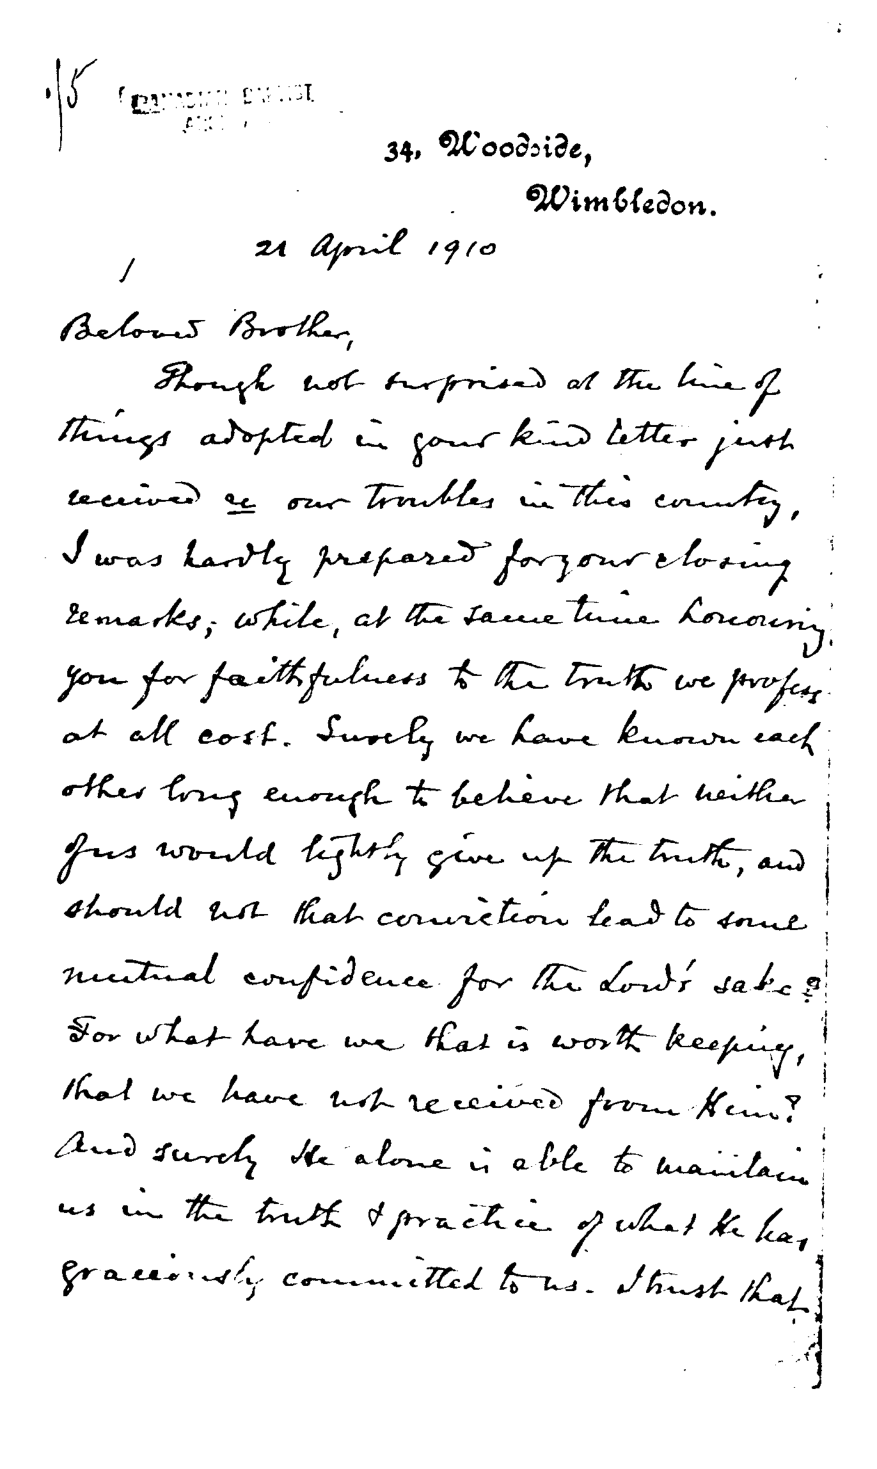 15
34, Woodside,
Wimbledon.
21 April 1910
Beloved Brother,
Though not surprised at the line of
things adopted in your kind letter just
received re our troubles in this country,
I was hardly prepared for your closing
remarks; while, at the same time honouring
you for faithfulness to the truth we profess
at all cost. Surely we have known each
other long enough to believe that neither
of us would lightly give up the truth, and
should not that conviction lead to some
mutual confidence for the Lord's sake?
For what have we that is worth keeping,
that we have not received from Him?
And surely He alone is able to maintain
us in the truth & practice of what He has
graciously committed to us. I trust that